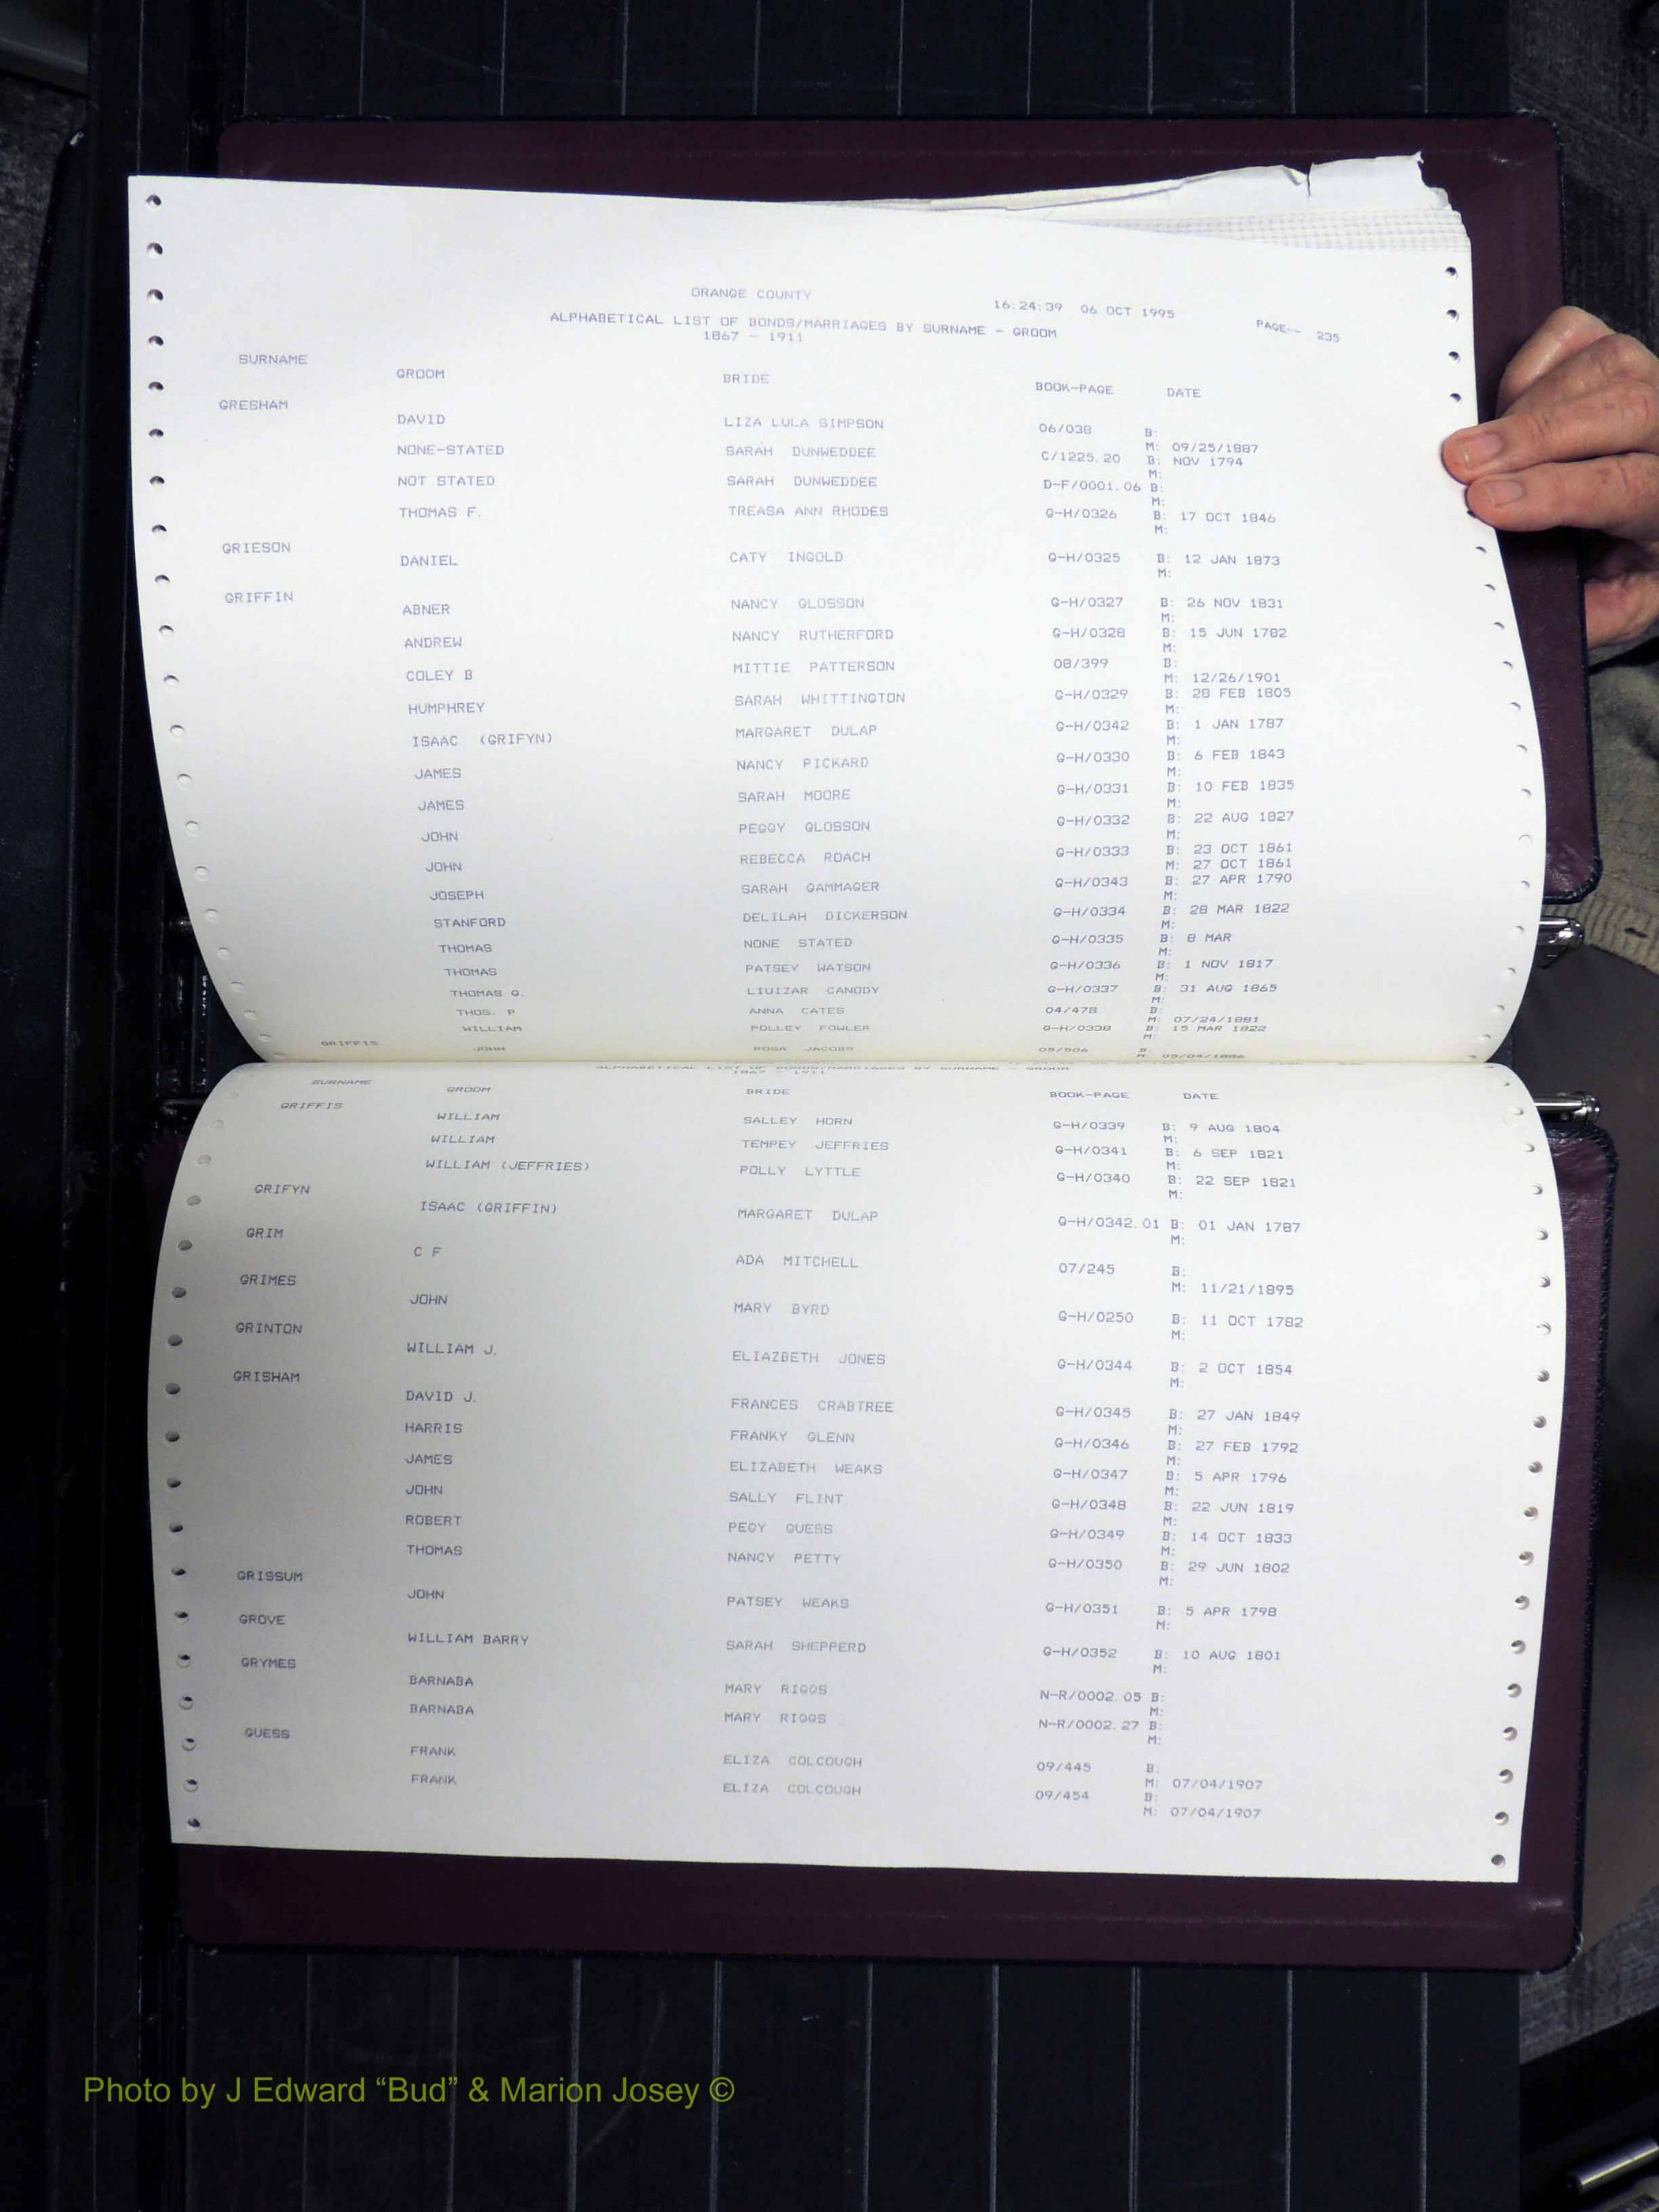 ORANGE COUNTY 16:24:39 06 OCT 1995
ALPHABETICAL LIST OF BONDS/MARRIAGES BY SURNAME - GROOM PAGE-- 235
1867 - 1911
SURNAME GROOM BRIDE BOOK-PAGE DATE
GRESHAM
DAVID LIZA LULA SIMPSON 06/038 B:
M: 09/25/1887
NONE-STATED SARAH DUNWEDDEE C/1225.20 B: NOV 1794
M:
NOT STATED SARAH DUNWEDDEE D-F/0001.06 B:
M:
THOMAS F. TREASA ANN RHODES G-H/0326 B: 17 OCT 1846
M:
GRIESON
DANIEL CATY INGOLD G-H/0325 B: 12 JAN 1873
M:
GRIFFIN
ABNER NANCY GLOSSON G-H/0327 B: 26 NOV 1831
M:
ANDREW NANCY RUTHERFORD G-H/0328 B: 15 JUN 1782
M:
COLEY B MITTIE PATTERSON 08/399 B:
M: 12/26/1901
HUMPHREY SARAH WHITTINGTON G-H/0329 B: 28 FEB 1805
M:
ISAAC (GRIFYN) MARGARET DULAP G-H/0342 B: 1 JAN 1787
M:
JAMES NANCY PICKARD G-H/0330 B: 6 FEB 1843
M:
JAMES SARAH MOORE G-H/0331 B: 10 FEB 1835
M:
JOHN PEGGY GLOSSON G-H/0332 B: 22 AUG 1827
M:
JOHN REBECCA ROACH G-H/0333 B: 23 OCT 1861
M: 27 OCT 1861
JOSEPH SARAH GAMMAGER G-H/0343 B: 27 APR 1790
M:
STANFORD DELILAH DICKERSON G-H/0334 B: 28 MAR 1822
M:
THOMAS NONE STATED G-H/0335 B: 8 MAR
M:
THOMAS PATSEY WATSON G-H/0336 B: 1 NOV 1817
M:
THOMAS G. LIUIZAR CANODY G-H/0337 B: 31 AUG 1865
M:
THOS. P ANNA CATES 04/478 B:
M: 07/24/1881
WILLIAM POLLEY FOWLER G-H/0338 B: 15 MAR 1822
M:
GRIFFIS
JOHN ROSA JACOBS 05/506 B:
M: 05/04/1886
ALPHABETICAL LIST OF BONDS/MARRIAGES BY SURNAME - GROOM
1867 - 1911
SURNAME GROOM BRIDE BOOK-PAGE DATE
GRIFFIS
WILLIAM SALLEY HORN G-H/0339 B: 9 AUG 1804
M:
WILLIAM TEMPEY JEFFRIES G-H/0341 B: 6 SEP 1821
M:
WILLIAM (JEFFRIES) POLLY LYTTLE G-H/0340 B: 22 SEP 1821
M:
GRIFYN
ISAAC (GRIFFIN) MARGARET DULAP G-H/0342.01 B: 01 JAN 1787
M:
GRIM
C F ADA MITCHELL 07/245 B:
M: 11/21/1895
GRIMES
JOHN MARY BYRD G-H/0250 B: 11 OCT 1782
M:
GRINTON
WILLIAM J. ELIAZBETH JONES G-H/0344 B: 2 OCT 1854
M:
GRISHAM
DAVID J. FRANCES CRABTREE G-H/0345 B: 27 JAN 1849
M:
HARRIS FRANKY GLENN G-H/0346 B: 27 FEB 1792
M:
JAMES ELIZABETH WEAKS G-H/0347 B: 5 APR 1796
M:
JOHN SALLY FLINT G-H/0348 B: 22 JUN 1819
M:
ROBERT PEGY GUESS G-H/0349 B: 14 OCT 1833
M:
THOMAS NANCY PETTY G-H/0350 B: 29 JUN 1802
M:
GRISSUM
JOHN PATSEY WEAKS G-H/0351 B: 5 APR 1798
M:
GROVE
WILLIAM BARRY SARAH SHEPPERD G-H/0352 B: 10 AUG 1801
M:
GRYMES
BARNABA MARY RIGGS N-R/0002.05 B:
M:
BARNABA MARY RIGGS N-R/0002.27 B:
M:
GUESS
FRANK ELIZA COLCOUGH 09/445 B:
M: 07/04/1907
FRANK ELIZA COLCOUGH 09/454 B:
M: 07/04/1907
Photo by J Edward “Bud” & Marion Josey ©